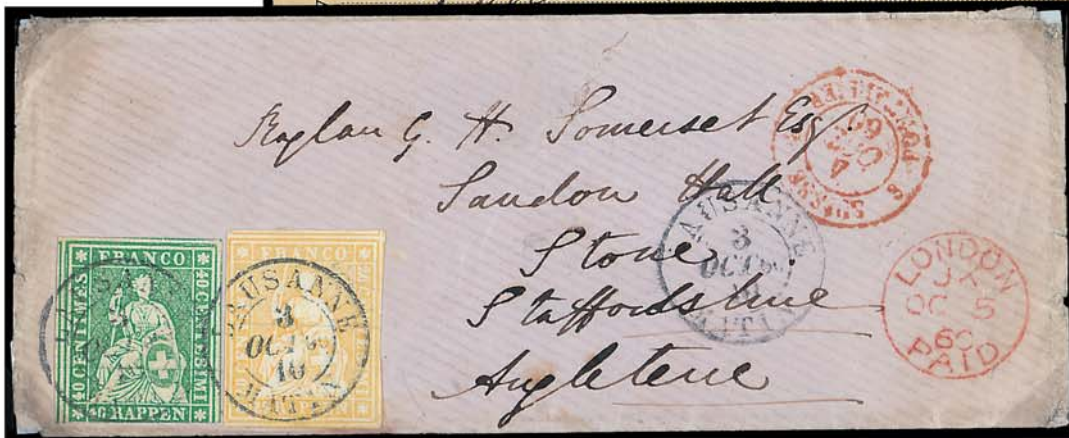 Raglan G. H. Somerset Esq.
Sandon Hall
Stone
Staffordshire
Angleterre
FRANCO
40 CENTIMES
40 CENTESIMI
40 RAPPEN
LAUSANNE
FRANCO
LAUSANNE
3
OCTO
10
MATIN
LAUSANNE
3
OCTO
MATIN
SUISSE
4
OCT
60
PONTARLIER
LONDON
JX
OC 5
60
PAID